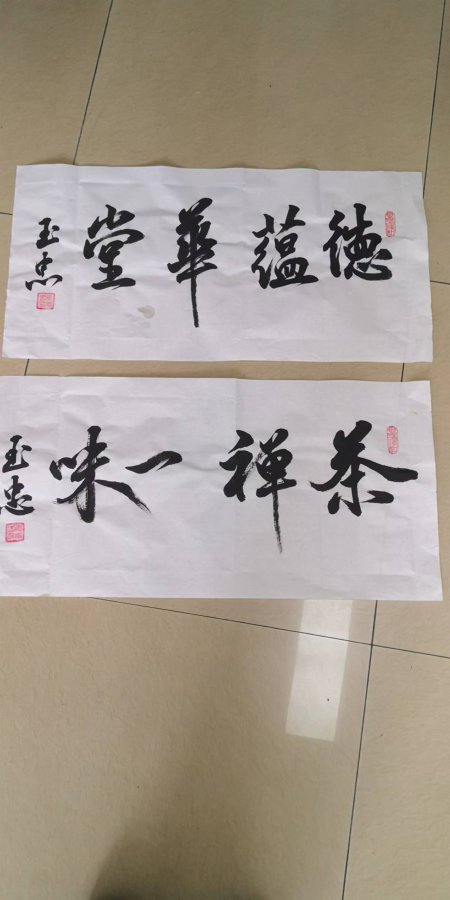 德蕴華堂
玉忠
茶禅一味
玉忠